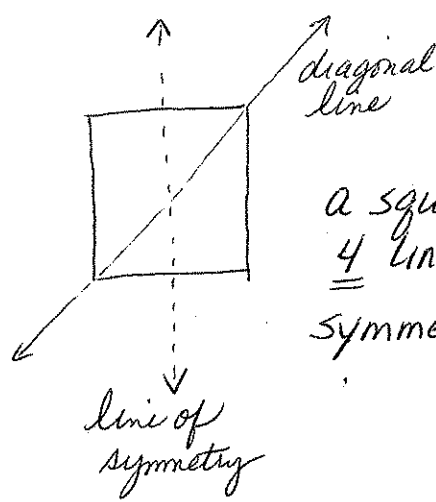 diagonal
line
a squ
4 lin
symme
line of
symmetry